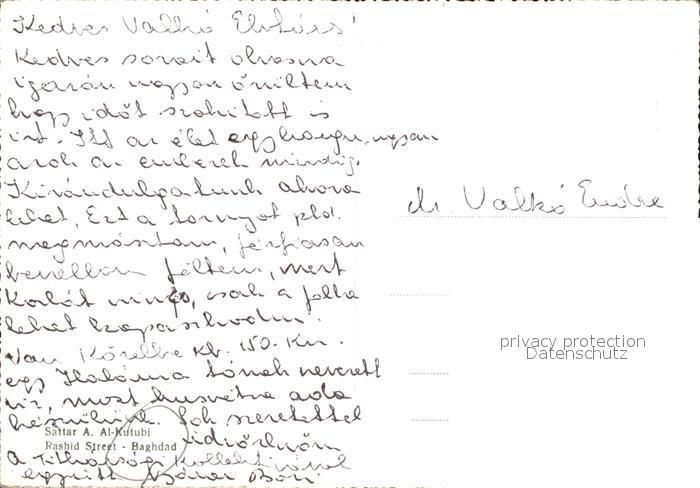 Kedves Valkó Elvtárs!
Kedves sorait olvasva
igazán nagyon örültem
hogy időt szakított is
írt. Itt az élet egyhangu, ugyan
azok az emberek mindig.
Kirándulgatunk ahova
lehet. Ezt a tornyot pld.
megmásztam, férfiasan
bevallom féltem, mert
Korlát nincs, csak a falba
lehet kapaszkodni.
Van Közelbe Kb. 150. Km.
egy Habánia tónak nevezett
víz, most husvétra oda
készülünk. Sok szeretettel
üdvözlöm
a Titkársági Kollektívával
együtt
dr. Valkó Endre
Sattar A. Al-Kutubi
Rashid Street - Baghdad
privacy protection
Datenschutz